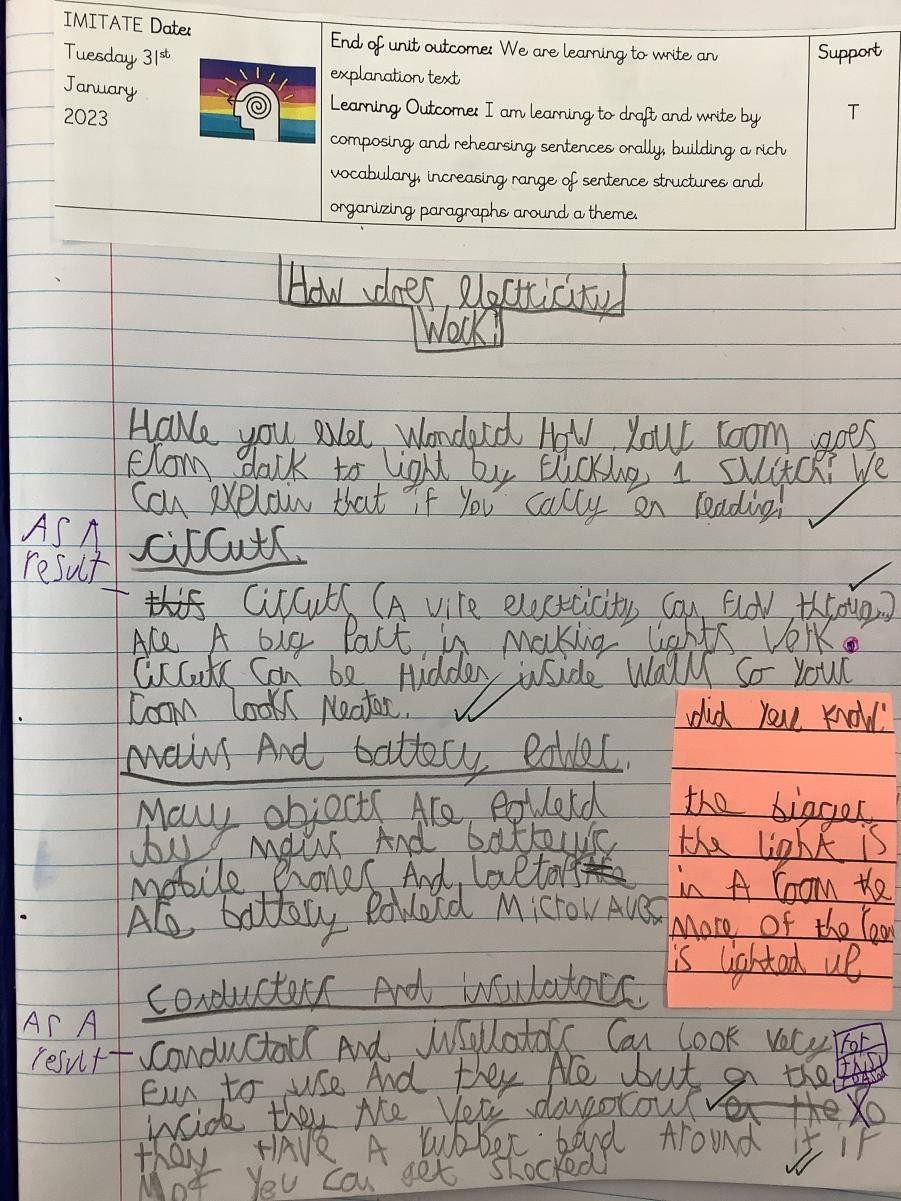 IMITATE Date:
Tuesday 31st
January
2023
End of unit outcome: We are learning to write an
explanation text
Learning Outcome: I am learning to draft and write by
composing and rehearsing sentences orally, building a rich
vocabulary, increasing range of sentence structures and
organizing paragraphs around a theme.
Support
T
How does electricity
Work!
Have you ever wonderd How your room goes
from dark to light by flicking 1 Switch! We
can explain that if you carry on reading!
As A
result
circuts.
this Circuts (A wire electricity can flow throug)
Are A big Part in making lights work.
Circuts can be Hidden inside walls so your
room looks neater.
mains And battery Power.
Many objects Are Powerd
by mains And batterys
mobile Phones And Laptops
Are battery Powerd Microwaves
did you know!
the bigger
the light is
in A room the
more of the
is lighted up
conducters And insulators.
As A
result
conductors And insellators can look very
fun to use And they Are but on the
inside they Are very dangorous on the
they HAVE A rubber band Around it if
Not you can get shocked
For
this